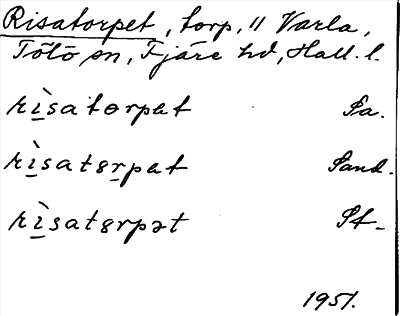 Risatorpet, torp, 11 Varla,
Tölö sn, Fjäre hd, Hall. l.
rìsatorpet Sa.
rìsatɞrpet Sand.
rìsatɞrpət Sf.
1951.